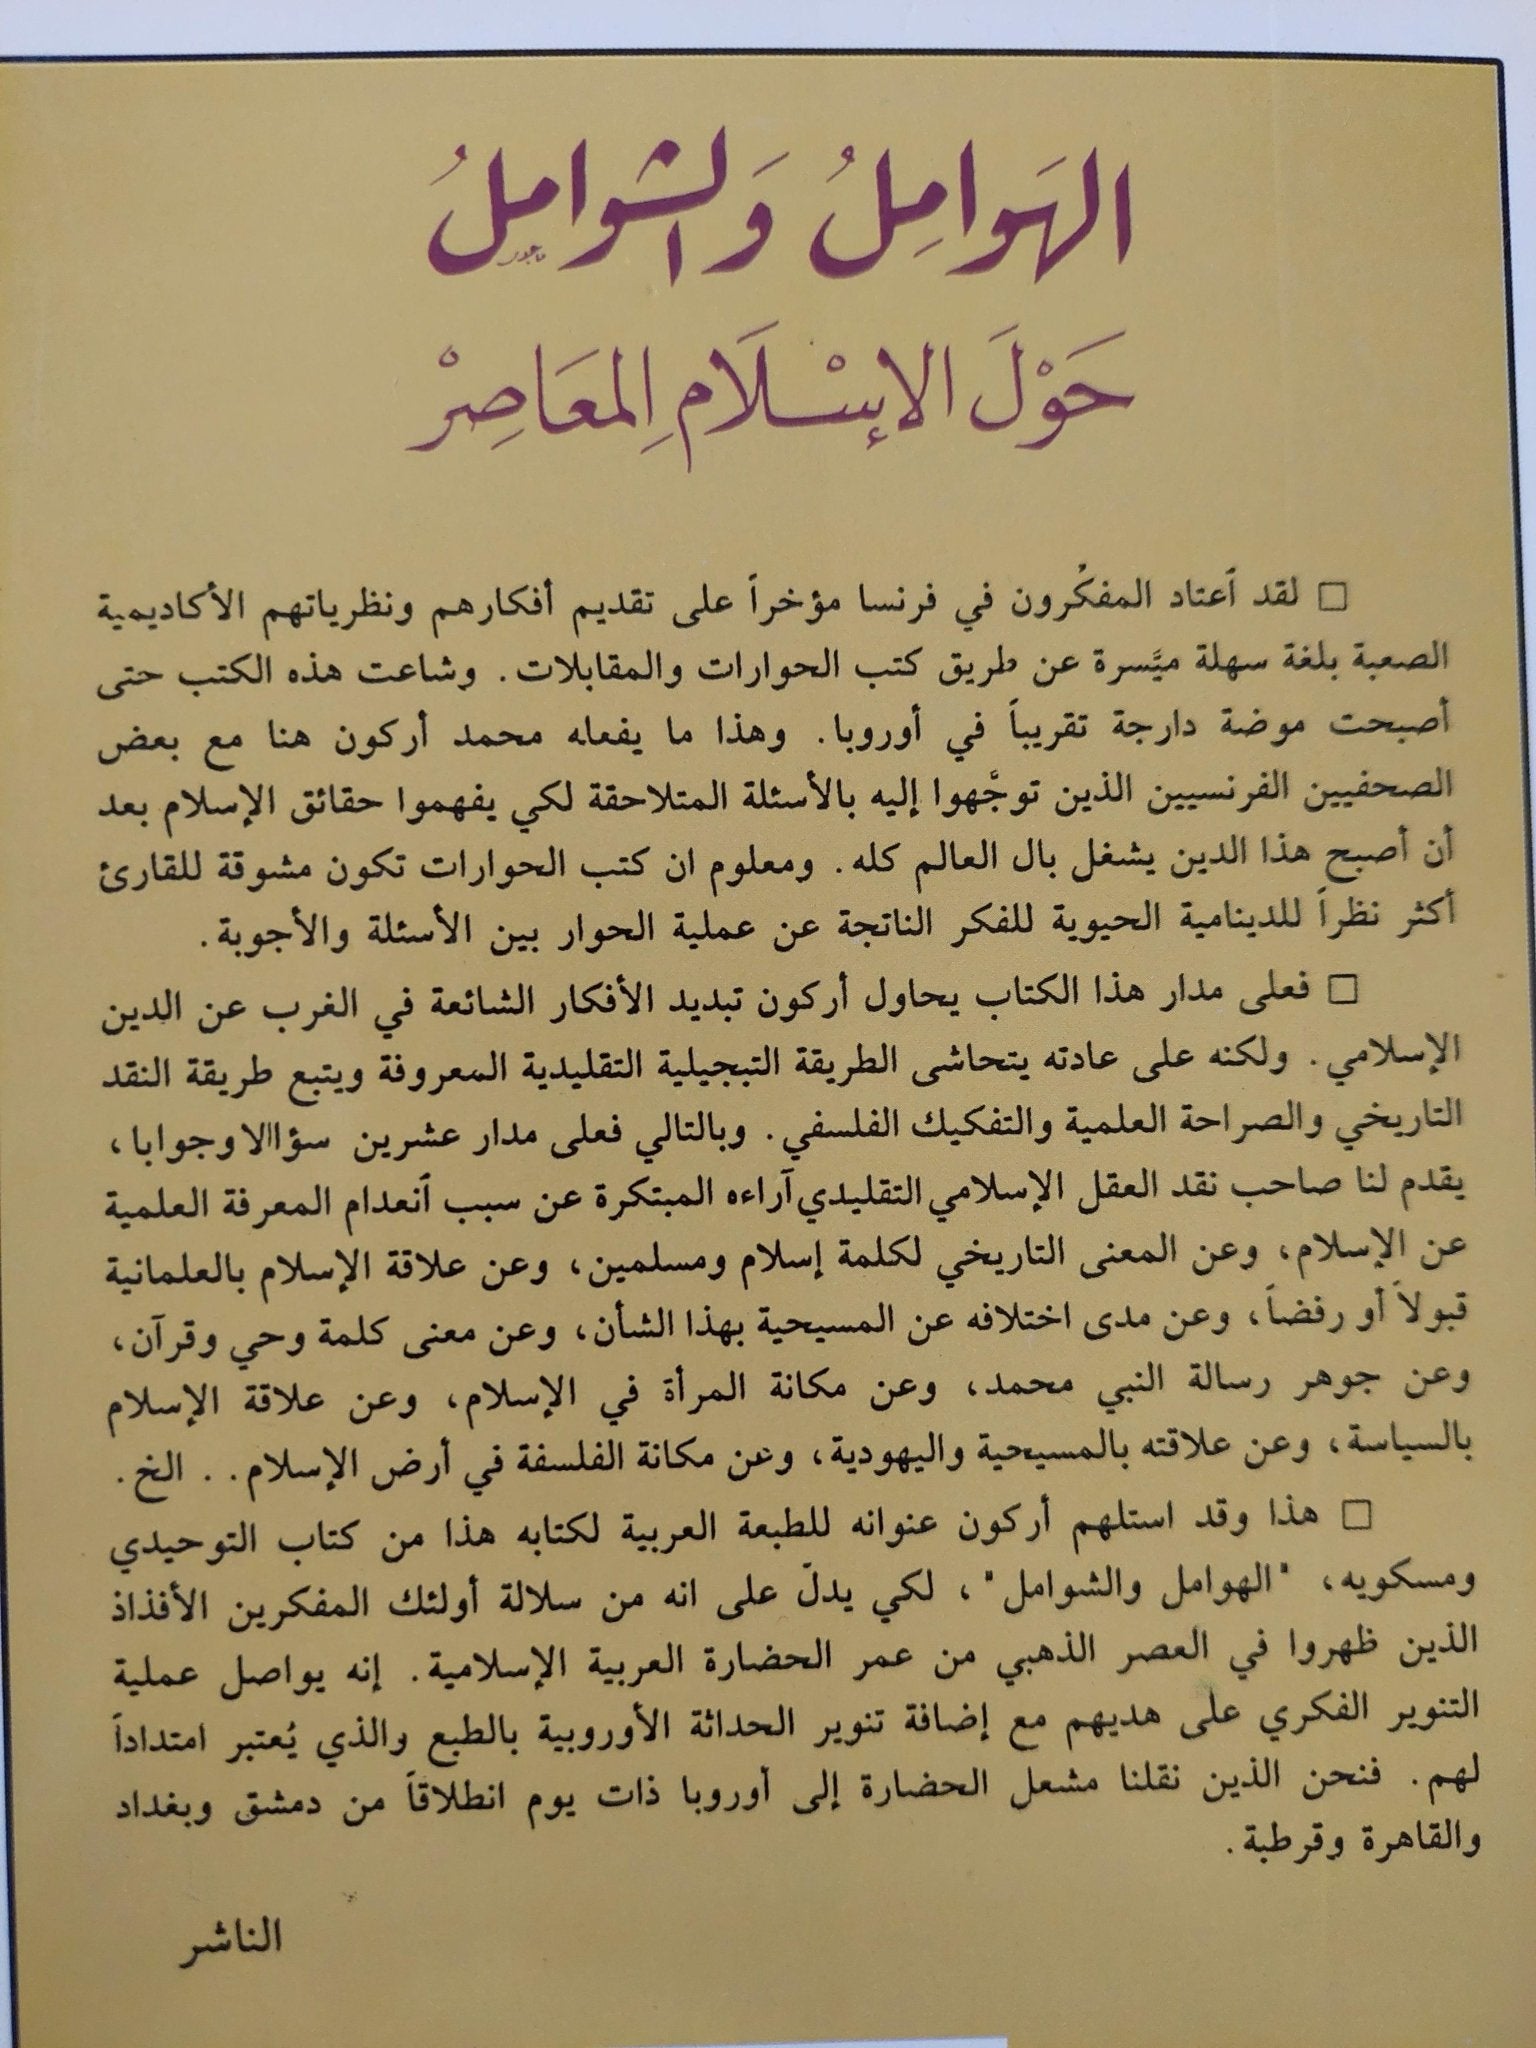 الهَوامِلُ وَالشوامِلُ
حَوْلَ الإسْلَامِ المعَاصِرْ
□ لقد اَعتاد المفكْرون في فرنسا مؤخراً على تقديم أفكارهم ونظرياتهم الأكاديمية
الصعبة بلغة سهلة ميَّسرة عن طريق كتب الحوارات والمقابلات. وشاعت هذه الكتب حتى
أصبحت موضة دارجة تقريباً في أوروبا. وهذا ما يفعله محمد أركون هنا مع بعض
الصحفيين الفرنسيين الذين توجَّهوا إليه بالأسئلة المتلاحقة لكي يفهموا حقائق الإسلام بعد
أن أصبح هذا الدين يشغل بال العالم كله. ومعلوم ان كتب الحوارات تكون مشوقة للقارئ
أكثر نظراً للدينامية الحيوية للفكر الناتجة عن عملية الحوار بين الأسئلة والأجوبة.
□ فعلى مدار هذا الكتاب يحاول أركون تبديد الأفكار الشائعة في الغرب عن الدين
الإسلامي. ولكنه على عادته يتحاشى الطريقة التبجيلية التقليدية المعروفة ويتبع طريقة النقد
التاريخي والصراحة العلمية والتفكيك الفلسفي. وبالتالي فعلى مدار عشرين سؤاالا وجوابا،
يقدم لنا صاحب نقد العقل الإسلامي التقليدي آراءه المبتكرة عن سبب اَنعدام المعرفة العلمية
عن الإسلام، وعن المعنى التاريخي لكلمة إسلام ومسلمين، وعن علاقة الإسلام بالعلمانية
قبولاً أو رفضاً، وعن مدى اختلافه عن المسيحية بهذا الشأن، وعن معنى كلمة وحي وقرآن،
وعن جوهر رسالة النبي محمد، وعن مكانة المرأة في الإسلام، وعن علاقة الإسلام
بالسياسة، وعن علاقته بالمسيحية واليهودية، وعن مكانة الفلسفة في أرض الإسلام.. الخ.
□ هذا وقد استلهم أركون عنوانه للطبعة العربية لكتابه هذا من كتاب التوحيدي
ومسكويه، "الهوامل والشوامل"، لكي يدلّ على انه من سلالة أولئك المفكرين الأفذاذ
الذين ظهروا في العصر الذهبي من عمر الحضارة العربية الإسلامية. إنه يواصل عملية
التنوير الفكري على هديهم مع إضافة تنوير الحداثة الأوروبية بالطبع والذي يُعتبر امتداداً
لهم. فنحن الذين نقلنا مشعل الحضارة إلى أوروبا ذات يوم انطلاقاً من دمشق وبغداد
والقاهرة وقرطبة.
الناشر